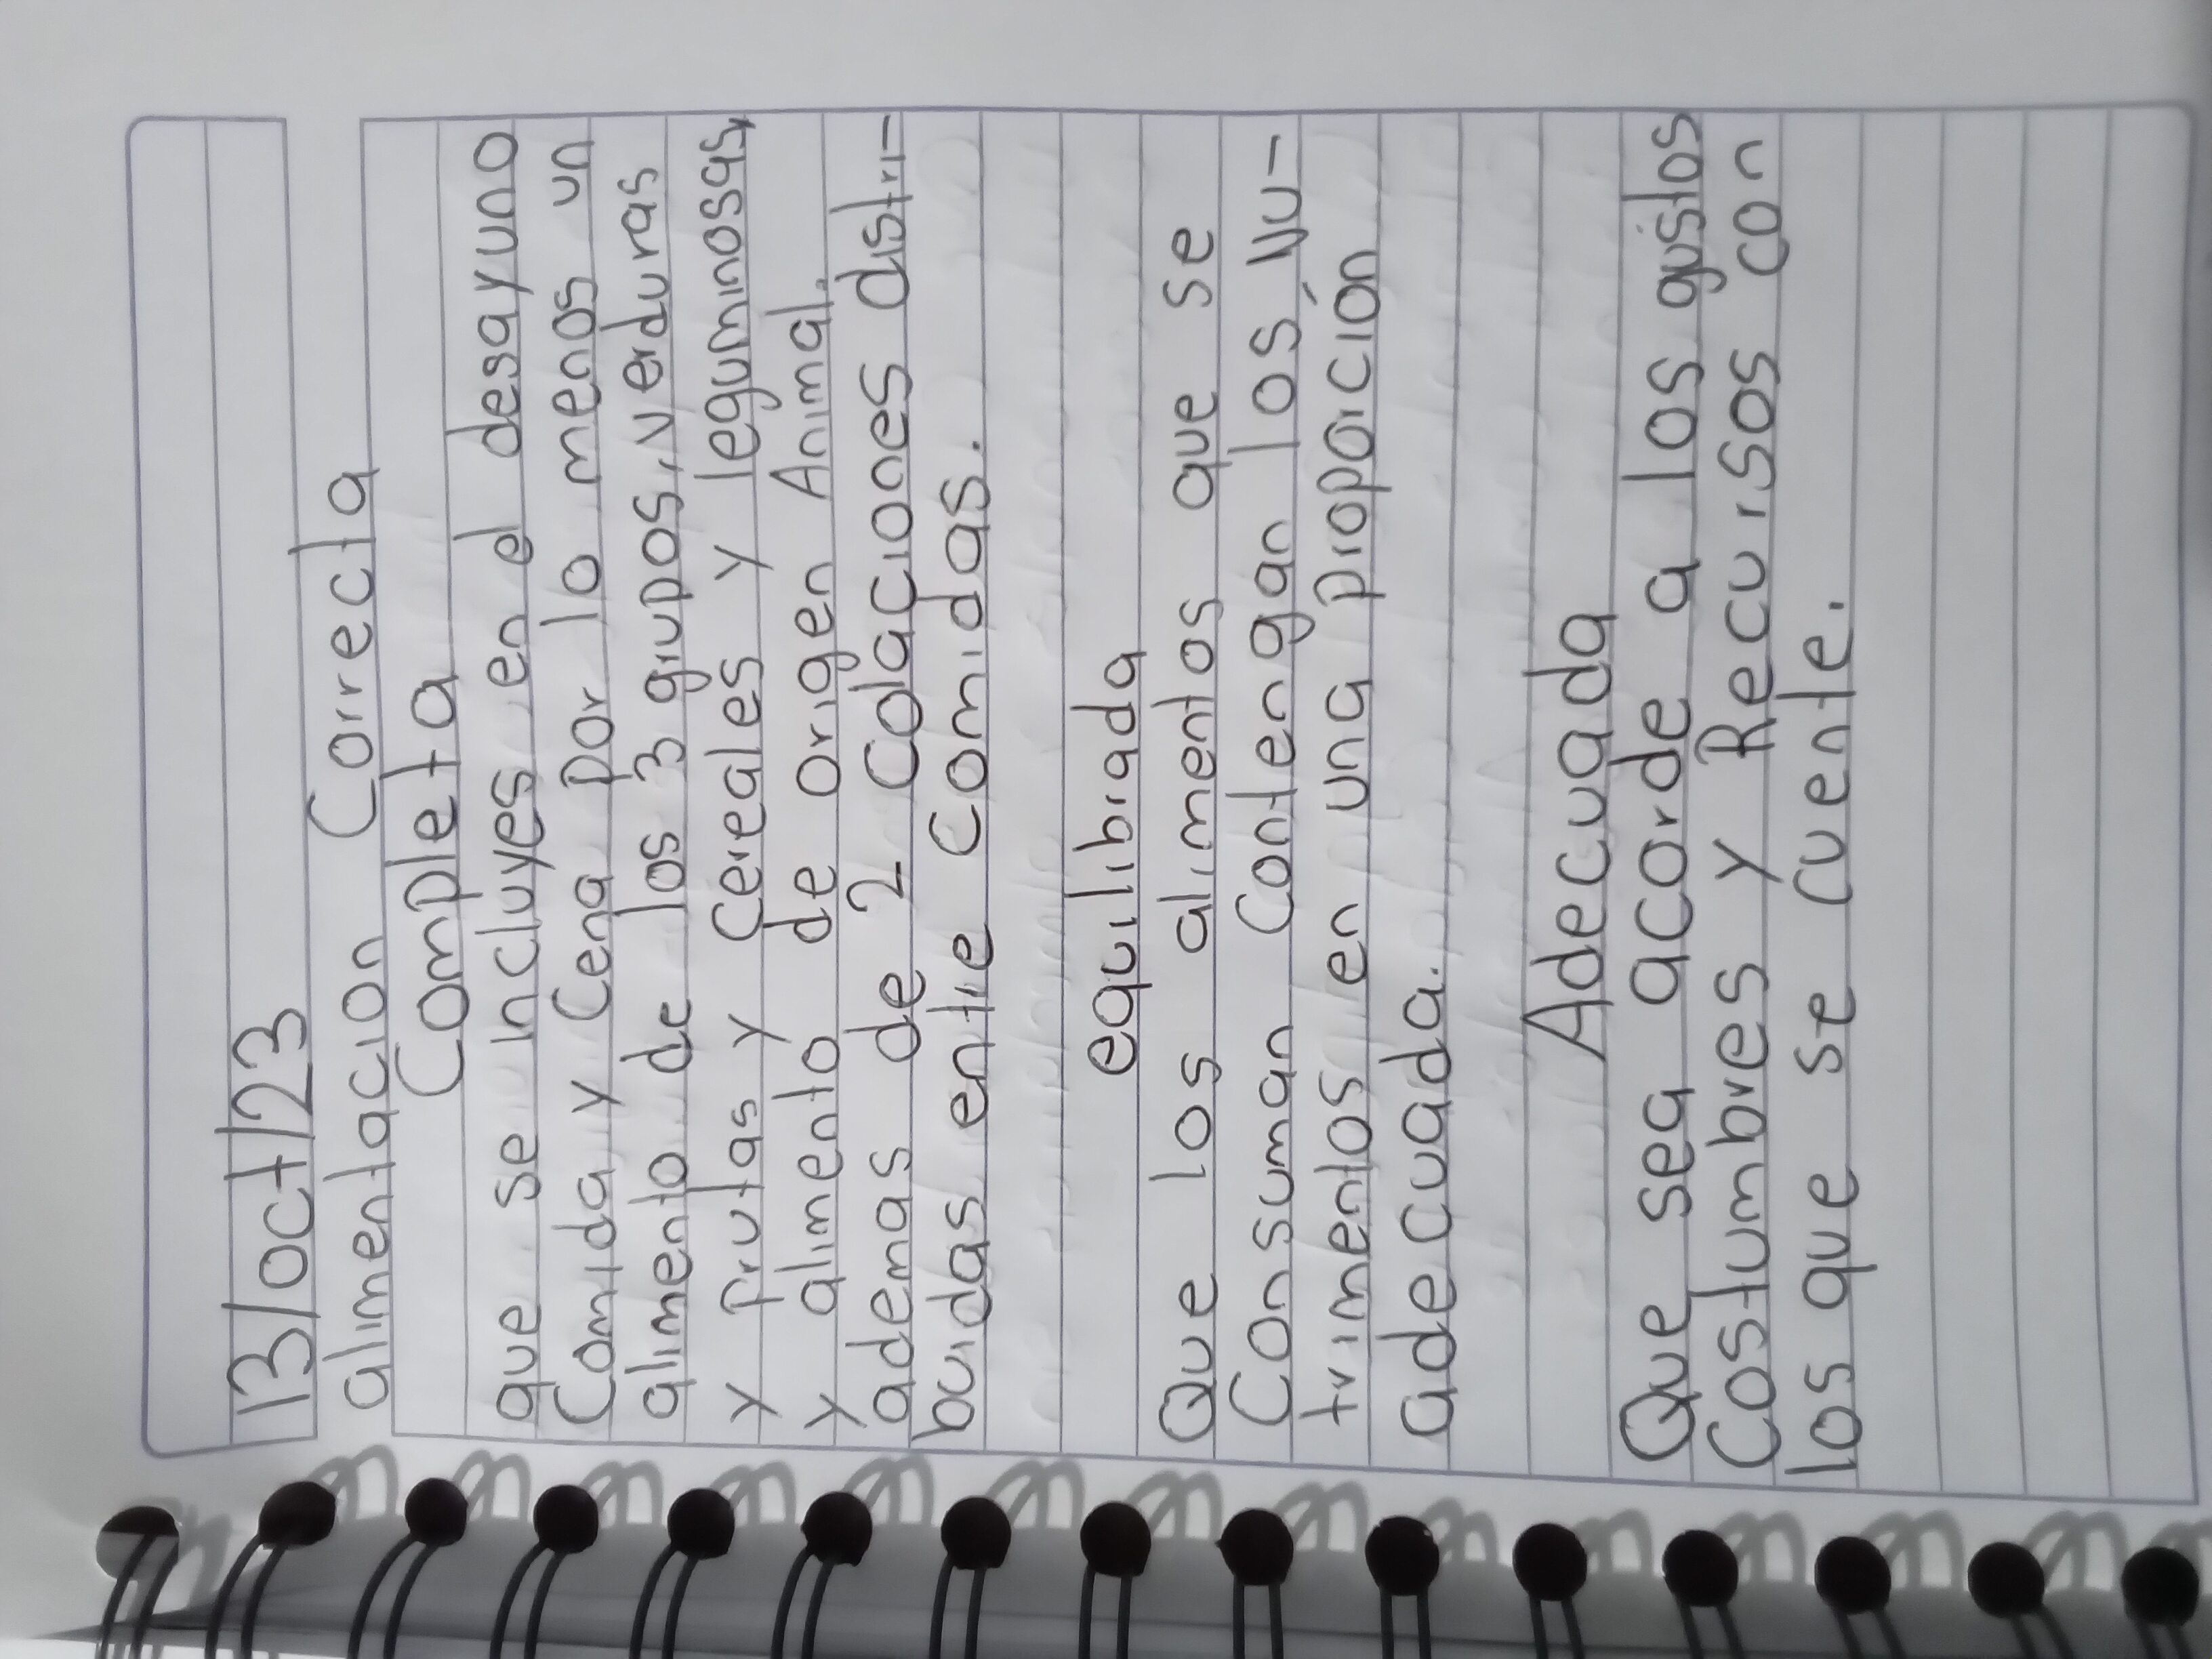 13/oct/23
alimentacion Correcta
Completa
que se incluyes en el desayuno
Comida y Cena por lo menos un
alimento de los 3 grupos, verduras
y frutas y Cereales y leguminosas,
y alimento de origen Animal.
ademas de 2 Colaciones distri-
buidas entre Comidas.
equilibrada
Que los alimentos que se
Consuman Contengan los Nu-
trimentos en una proporción
adecuada.
Adecuada
Que sea acorde a los gustos
Costumbres y Recursos con
los que se cuente.